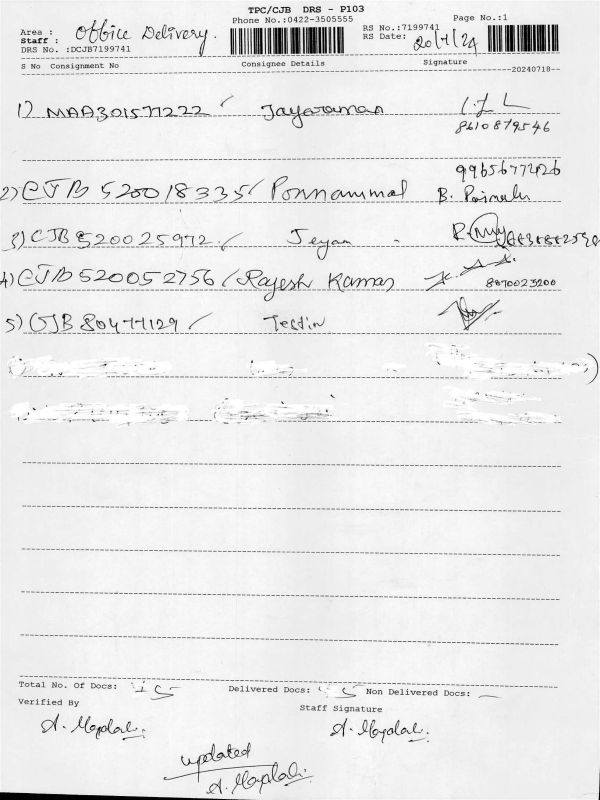 TPC/CJB DRS - P103
Phone No.:0422-3505555
Page No.:1
Area : Office Delivery.
Staff :
DRS No. :DCJB7199741
RS No.:7199741
RS Date: 20/7/24
S No Consignment No Consignee Details Signature
20240718
1) MAA301577222 Jayaraman
8610879546
9965677426
2) CJB 520018335 Ponnammal B.
3) CJB 520025972 Jeyan
4) CJB 520052756 Rajesh Kumar
8070023200
5) CJB 80477129 Testin
Total No. Of Docs: 5 Delivered Docs: 5 Non Delivered Docs: —
Verified By Staff Signature
updated